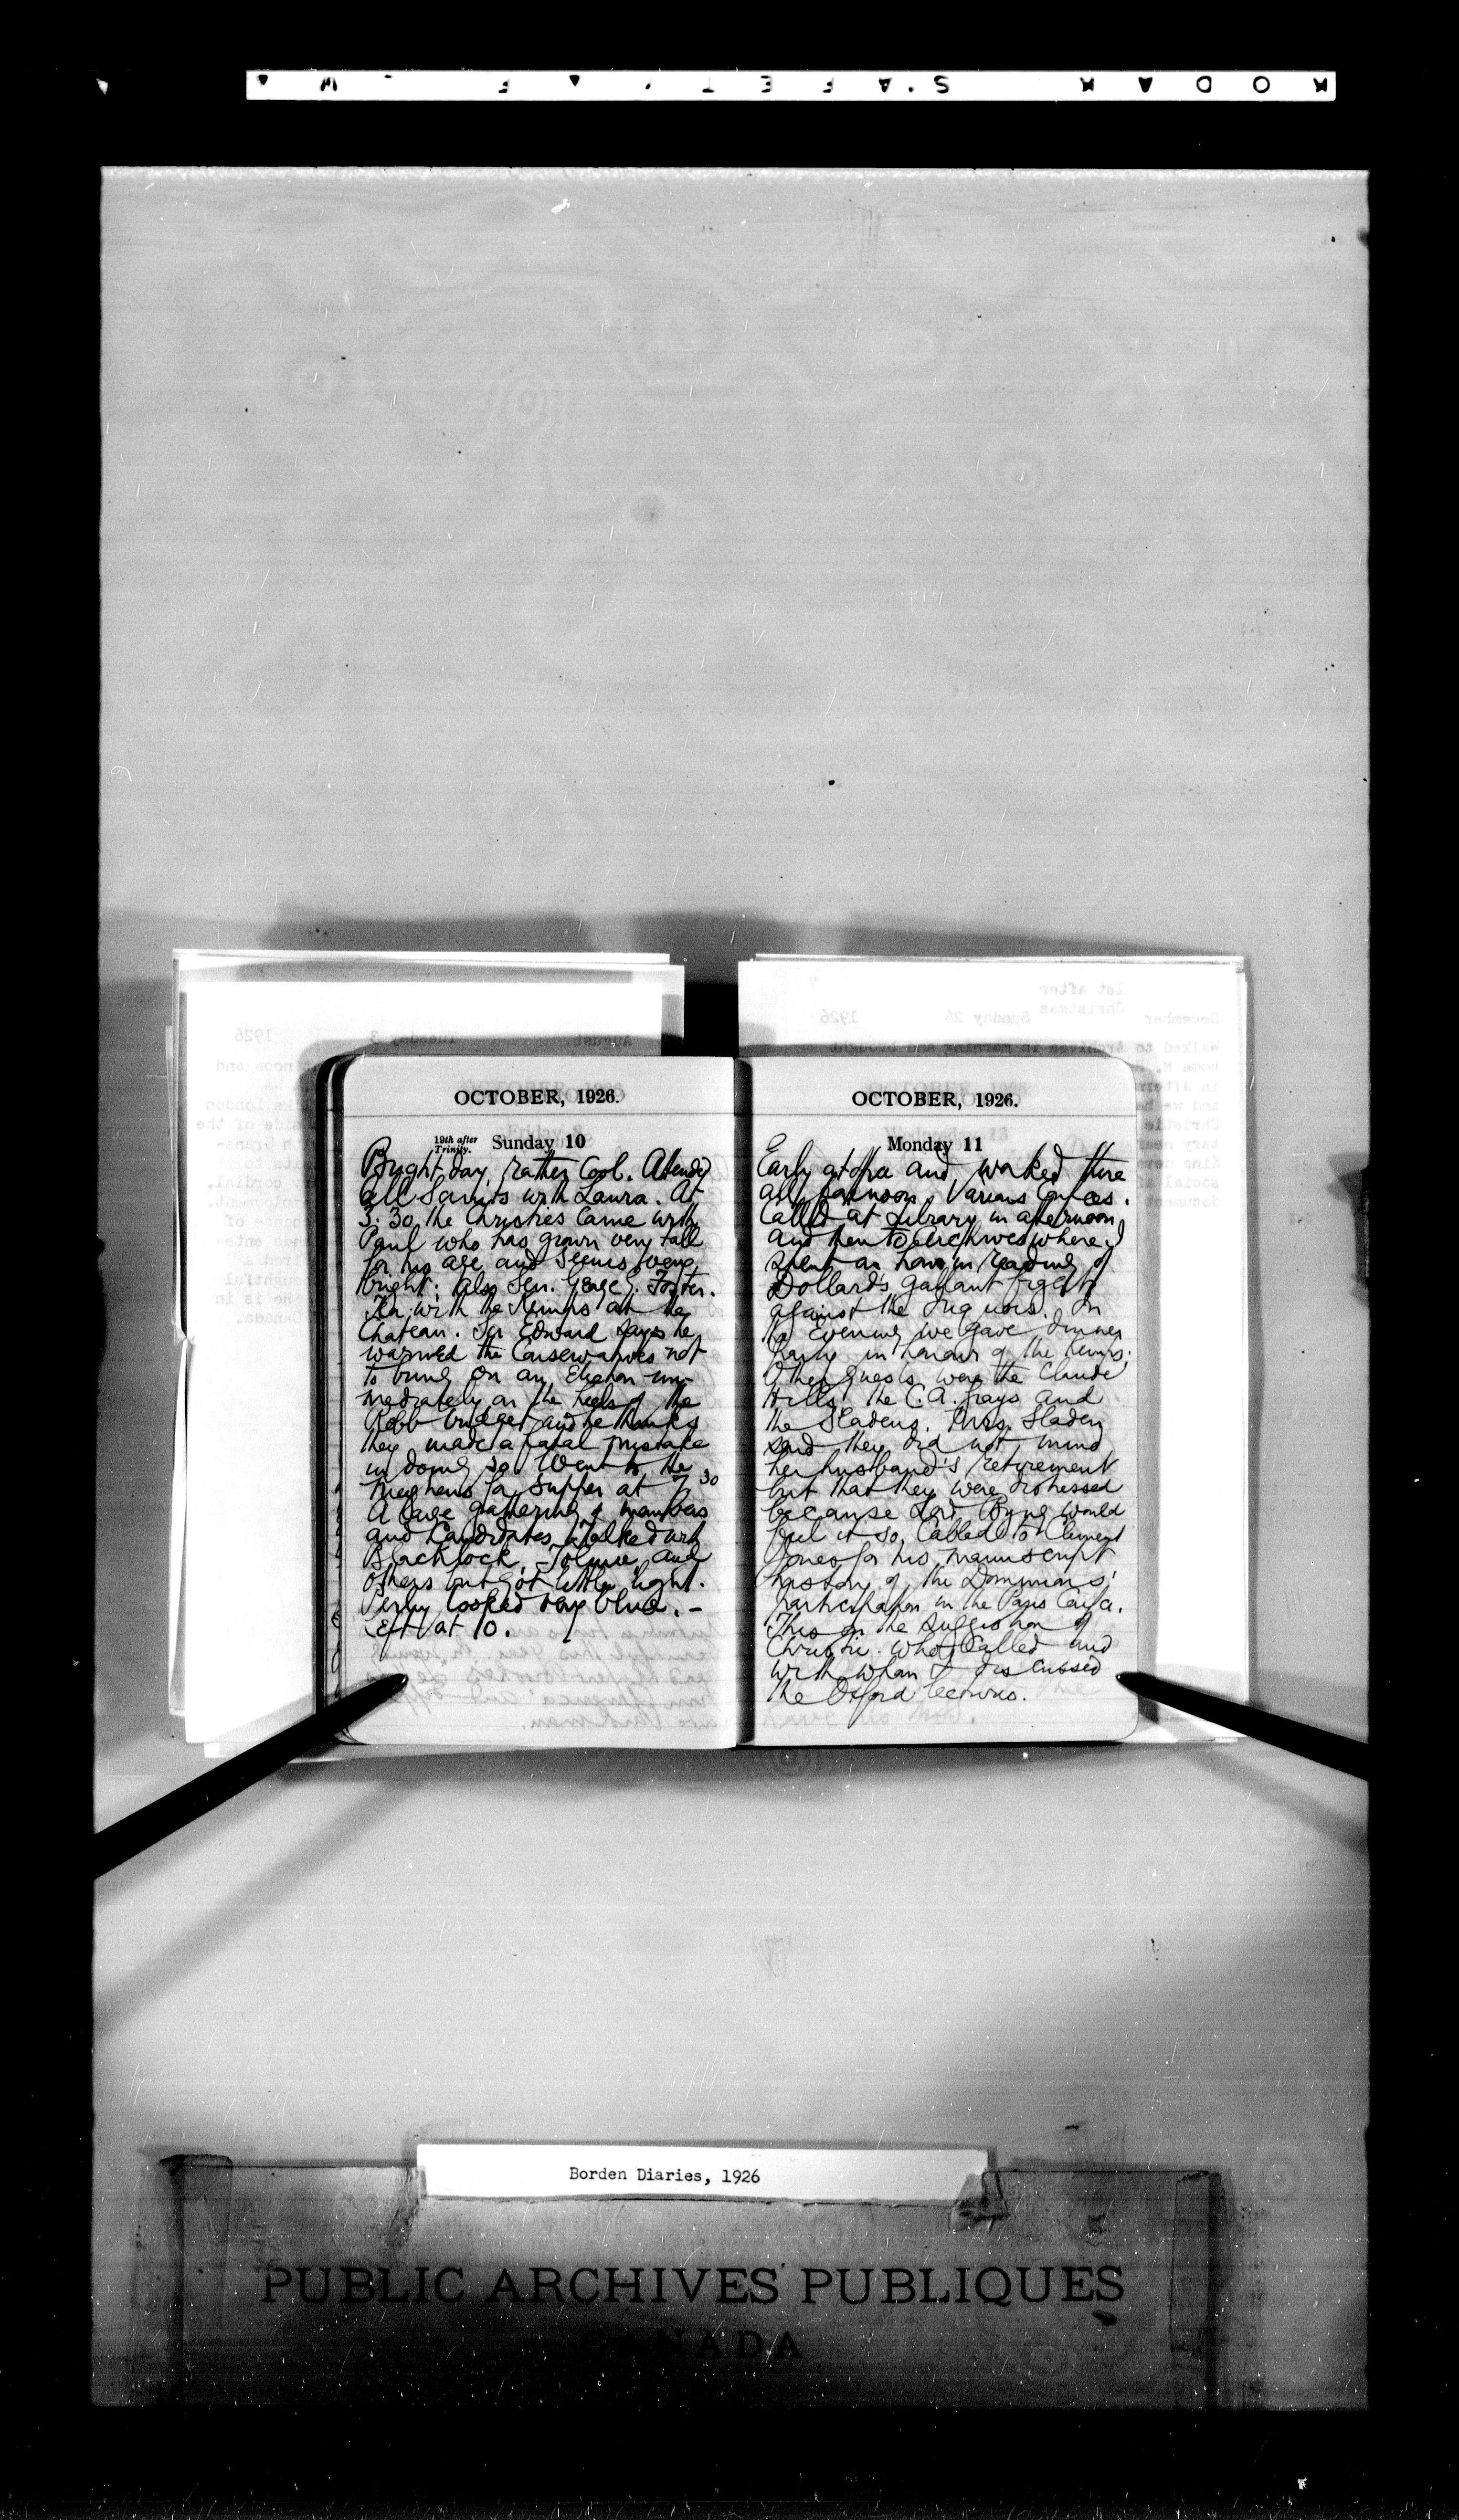 KODAK SAFETY
OCTOBER, 1926.
19th after Trinity. Sunday 10
Bright day, rather cool. Attended
All Saints with Laura. At
3:30 the Christies came with
Paul who has grown very tall
for his age and seems very
bright; also Sir George E. Foster.
Tea with the Kemps at the
Chateau. Sir Edward says he
warned the Conservatives not
to bring on an Election im-
mediately on the heels of the
Robb budget and he thinks
they made a fatal mistake
in doing so. Went to the
Meighens for supper at 7 30
A large gathering of members
and Candidates. Talked with
Black Tolmie, and
others but got little light.
Perley looked very blue. –
Left at 10.
OCTOBER, 1926.
Monday 11
Early at office and worked there
all forenoon. Various
Called at Library in afternoon
and then to Archives where I
spent an hour in reading of
Dollard's gallant fight
against the Iroquois. In
the Evening we gave dinner
party in honour of the Kemps.
Other guests were the Claude
Hills, the C.A. Grays and
the Sladens. Mrs. Sladen
said they did not mind
her husband's retirement
but that they were distressed
because Lord Byng would
feel it so. Cabled to Clement
Jones for his manuscript
history of the Dominions'
participation in the Paris Confce.
This on the suggestion of
Christie who called and
with whom I discussed
the Oxford lectures.
Borden Diaries, 1926
PUBLIC ARCHIVES PUBLIQUES
CANADA